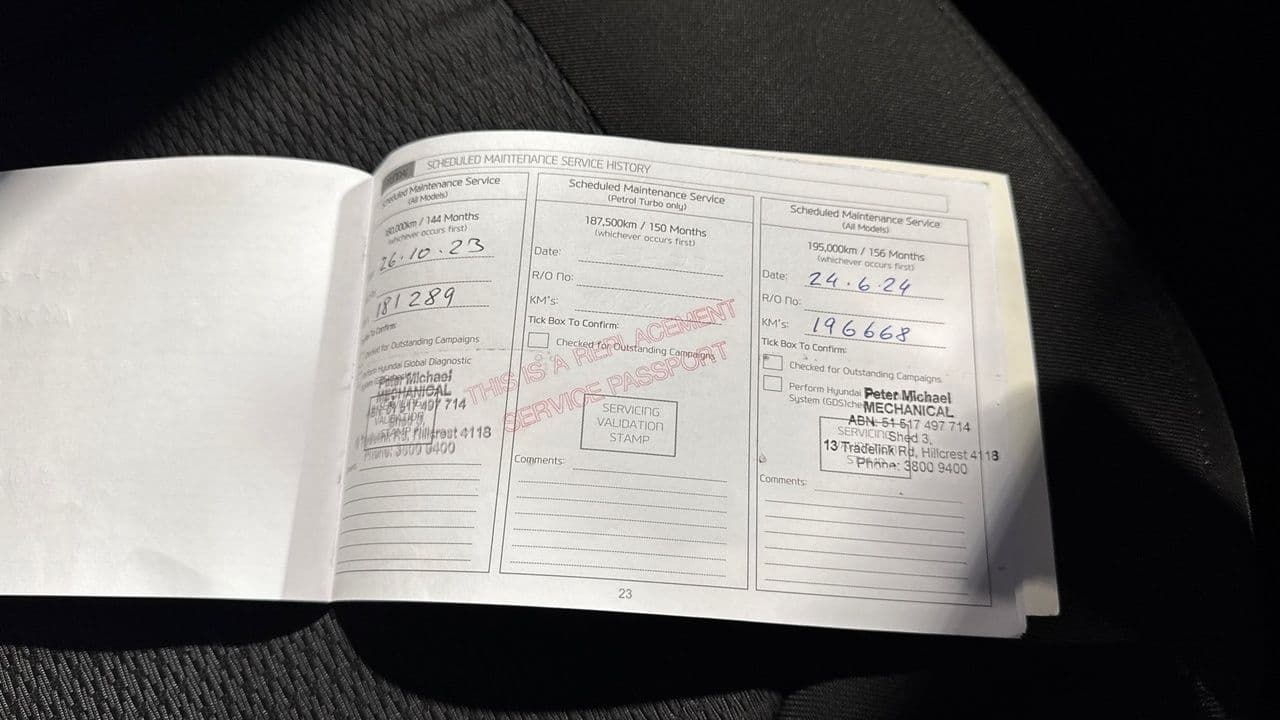 SCHEDULED MAINTENANCE SERVICE HISTORY
Scheduled Maintenance Service
(All Models)
180,000km / 144 Months
(whichever occurs first)
26.10.23
181289
To Confirm:
Checked for Outstanding Campaigns
Perform Hyundai Global Diagnostic
Peter Michael
MECHANICAL
ABN: 51 517 497 714
VALIDATION
Tradelink Rd, Hillcrest 4118
Phone: 3800 9400
Scheduled Maintenance Service
(Petrol Turbo only)
187,500km / 150 Months
(whichever occurs first)
Date:
R/O No:
KM's:
Tick Box To Confirm:
Checked for Outstanding Campaigns
THIS IS A REPLACEMENT
SERVICE PASSPORT
SERVICING
VALIDATION
STAMP
Comments:
Scheduled Maintenance Service
(All Models)
195,000km / 156 Months
(whichever occurs first)
Date: 24.6.24
R/O No:
KM's: 196668
Tick Box To Confirm:
Checked for Outstanding Campaigns
Perform Hyundai
System (GDS)
Peter Michael
MECHANICAL
ABN: 51 517 497 714
SERVICING
Shed 3,
13 Tradelink Rd, Hillcrest 4118
Phone: 3800 9400
Comments:
23